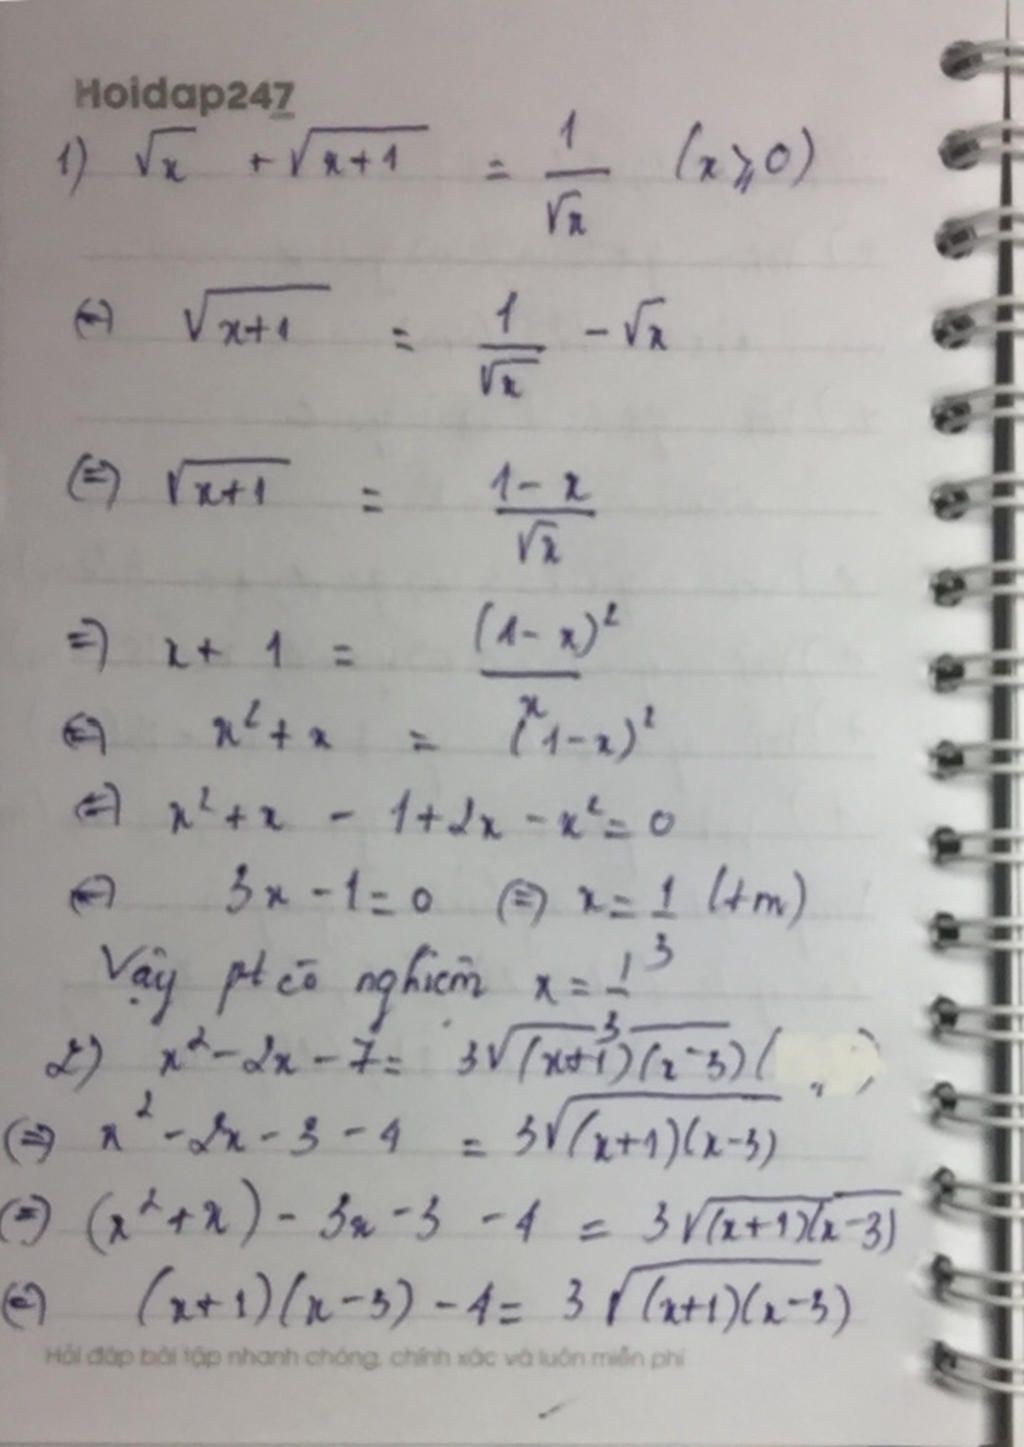 Hoidap247
1) √x + √(x+1) = 1/√x (x ⩾ 0)
(=) √(x+1) = 1/√x - √x
(=) √(x+1) = (1-x)/√x
=) x + 1 = (1-x)²/x
(=) x² + x = (1-x)²
(=) x² + x - 1 + 2x - x² = 0
(=) 3x - 1 = 0 (=) x = 1/3 (tm)
Vậy pt có nghiệm x = 1/3
2) x² - 2x - 7 = 3√((x+1)(x-3)) (
(=) x² - 2x - 3 - 4 = 3√((x+1)(x-3))
(=) (x² + x) - 3x - 3 - 4 = 3√((x+1)(x-3))
(=) (x+1)(x-3) - 4 = 3√((x+1)(x-3))
Hỏi đáp bài tập nhanh chóng, chính xác và luôn miễn phí